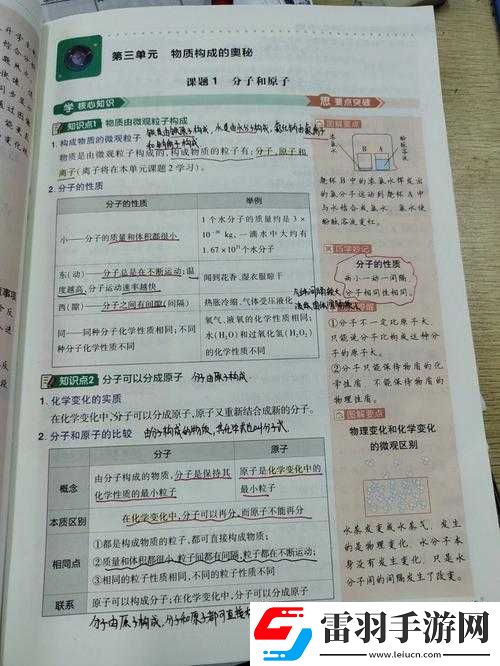 第三单元 物质构成的奥秘
课题1 分子和原子
学 核心知识
思 要点突破
知识点1 物质由微观粒子构成
1. 构成物质的微观粒子
物质是由微观粒子构成的,构成物质的粒子有:分子,原子和
离子(离子将在本单元课题2学习)。
2. 分子的性质
分子的性质 举例
小——分子的质量和体积都很小
1个水分子的质量约是3×
10⁻²⁶ kg,一滴水中大约有
1.67×10²¹个水分子
东(动)——分子总是在不断运动;温
度越高,分子运动速率越快
闻到花香、湿衣服晾干
西(隙)——分子之间有间隙(间隔)
热胀冷缩、气体受压液化
同——同种分子化学性质相同;不同
种分子化学性质不同
氧气、液氧的化学性质相同;
水(H₂O)和过氧化氢(H₂O₂)
的化学性质不同
知识点2 分子可以分成原子
分子由原子构成
1. 化学变化的实质
在化学变化中,分子可以分成原子,原子又重新结合成新的分子。
2. 分子和原子的比较
分子 原子
概念
由分子构成的物质,分子是保持其
化学性质的最小粒子
原子是化学变化中的
最小粒子
本质区别
在化学变化中,分子可以再分,而原子不能再分
相同点
①都是构成物质的粒子,都可直接构成物质;
②质量和体积都很小,粒子间都有间隔,粒子都在不断运动;
③相同的粒子性质相同,不同的粒子性质不同
联系
原子可以构成分子;在化学变化中,分子可以分成原子
分子由原子构成,分子和原子都可直接构
图解要点
A
B
烧杯B中的浓氨水挥发出
的氨分子运动到烧杯A中
与水结合成氨水,氨水使
酚酞溶液变红。
巧学妙记
分子的性质
两小一动一间隔,
分子相性相同。
①分子不一定比原子大,
只能说分子比构成这种分
子的原子大。
②分子只能保持物质的化
学性质,不能保持物质的
物理性质。
图解要点
物理变化和化学变化
的微观区别
水蒸发变成水蒸气,发生
的是物理变化,水分子本
身没有发生变化,只是水
分子间的间隔发生了改变。
雷羽手游网
www.leiucn.com